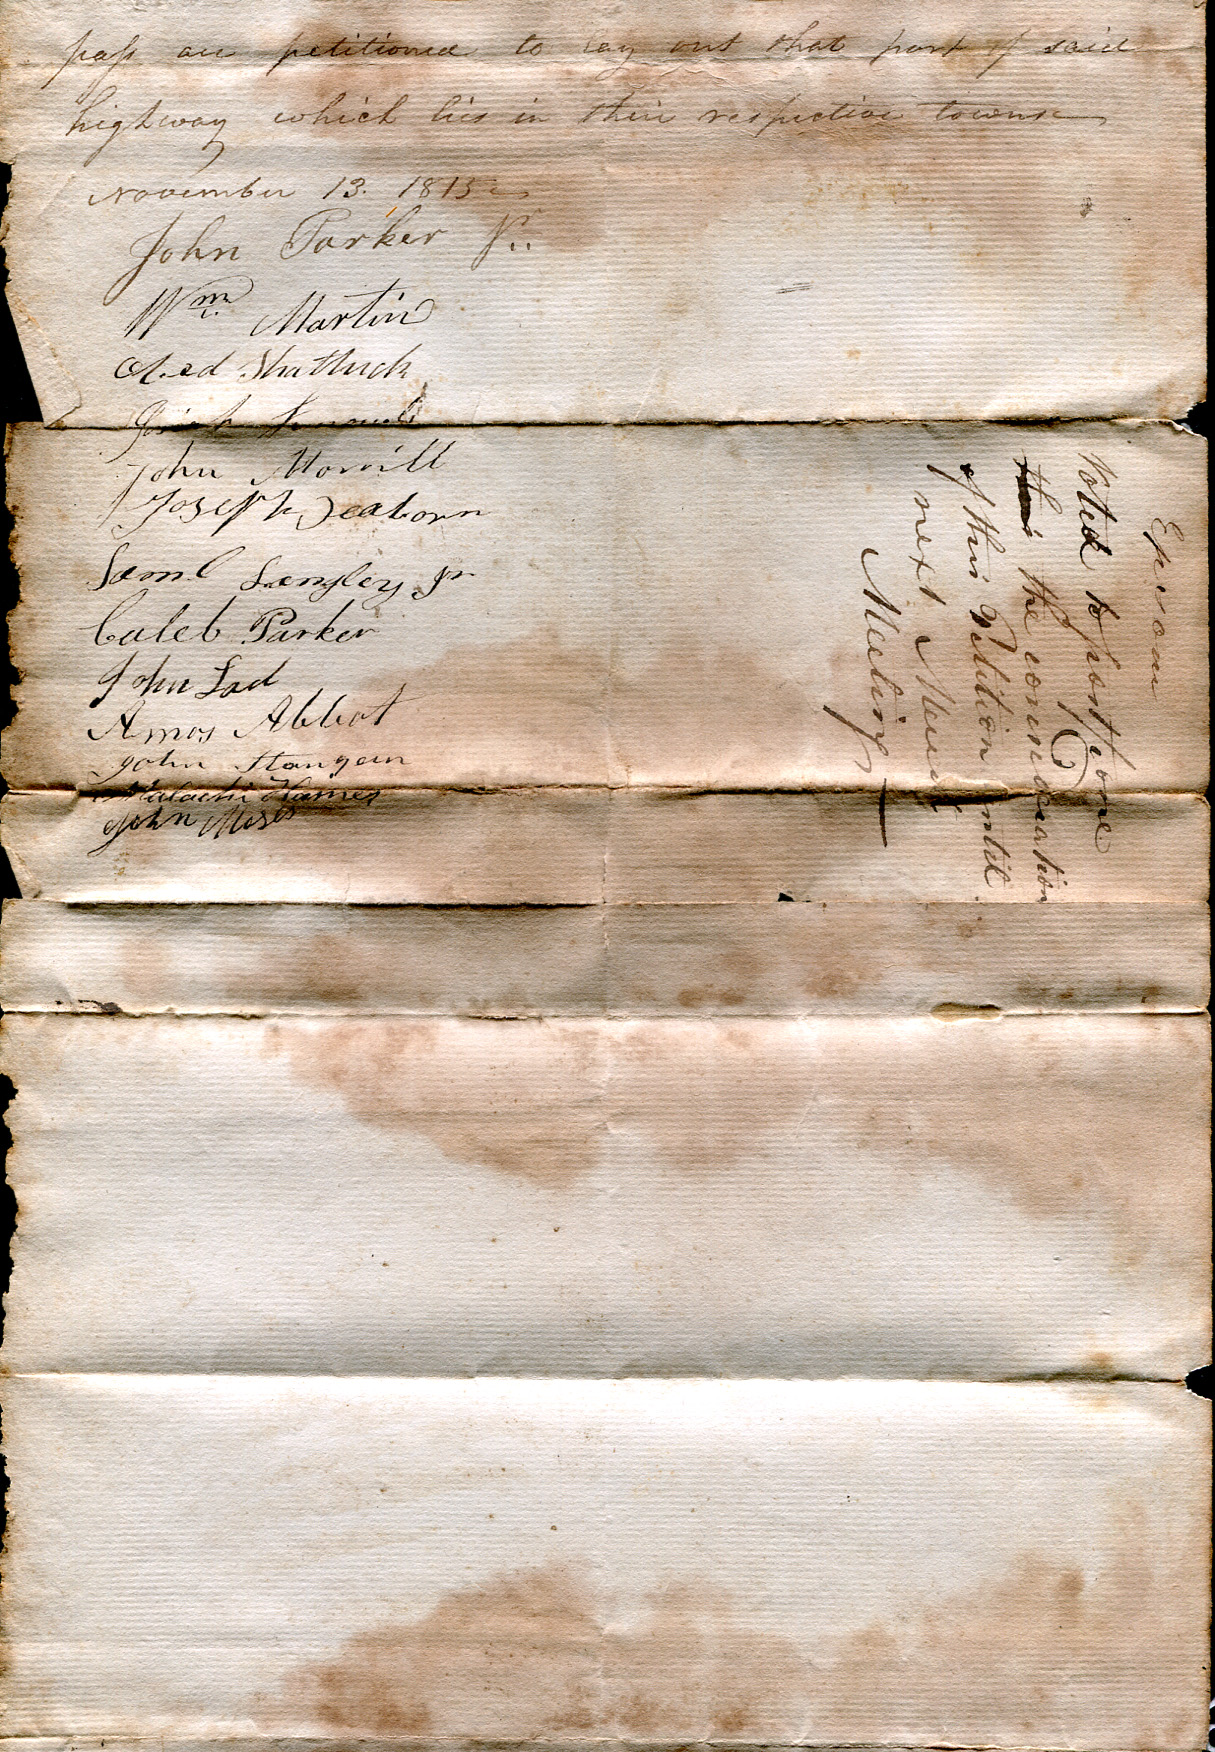 pass are petitioned to lay out that part of said
highway which lies in their respective towns
November 13. 1815
John Parker Jr.
Wm. Martin
Shattuck
John Morrill
Joseph Dearborn
Saml Langley Jr
Caleb Parker
John Lad
Amos Abbot
John
Malachi Haines
John Moses
Epsom
Voted to postpone
the consideration
of this Petition until
next
Meeting